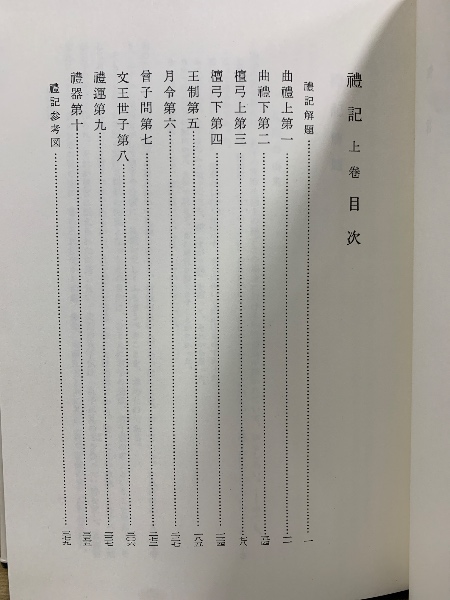 禮記 上卷 目次
禮記解題……一
曲禮上第一
曲禮下第二
檀弓上第三
檀弓下第四
王制第五
月令第六
曾子問第七
文王世子第八
禮運第九
禮器第十
禮記參考図